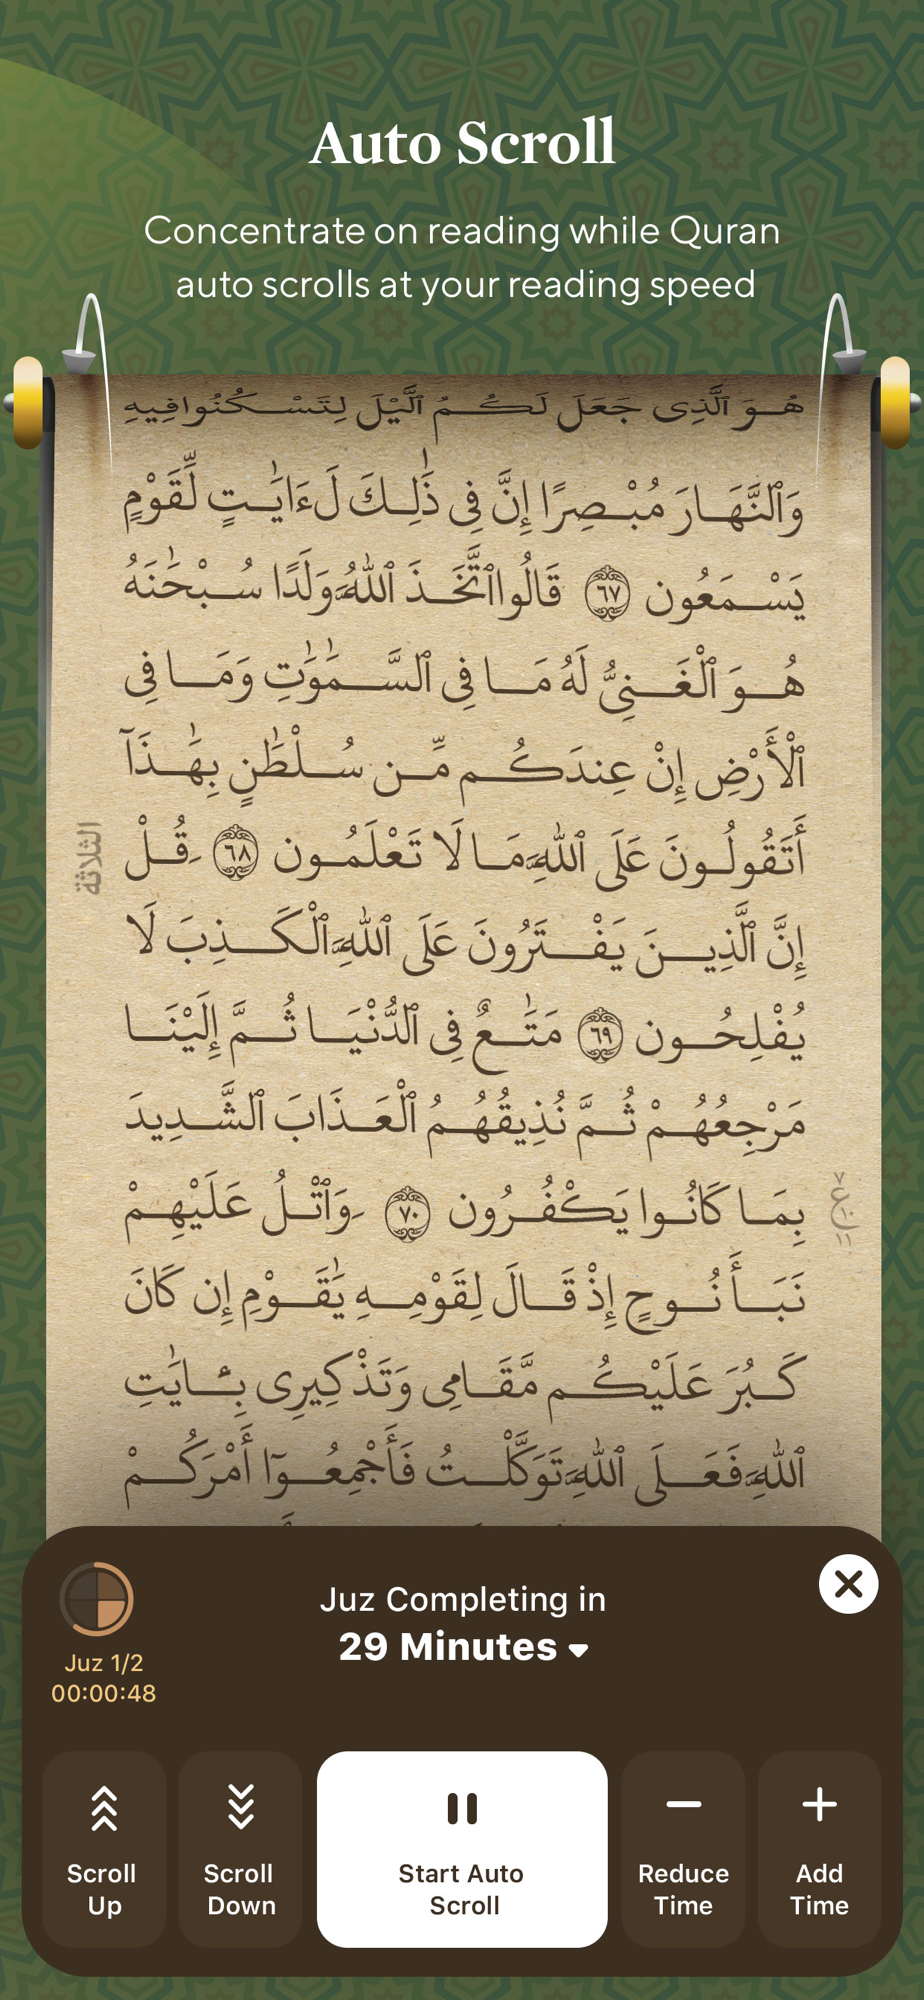 Auto Scroll
Concentrate on reading while Quran
auto scrolls at your reading speed
هُوَ ٱلَّذِى جَعَلَ لَكُمُ ٱلَّيْلَ لِتَسْكُنُوا فِيهِ
وَٱلنَّهَارَ مُبْصِرًا إِنَّ فِى ذَٰلِكَ لَءَايَٰتٍ لِّقَوْمٍ
يَسْمَعُون ٦٧ قَالُوا ٱتَّخَذَ ٱللَّهُ وَلَدًا سُبْحَٰنَهُ
هُوَ ٱلْغَنِىُّ لَهُ مَا فِى ٱلسَّمَٰوَٰتِ وَمَا فِى
ٱلْأَرْضِ إِنْ عِندَكُم مِّن سُلْطَٰنٍ بِهَٰذَآ
أَتَقُولُونَ عَلَى ٱللَّهِ مَا لَا تَعْلَمُون ٦٨ قُلْ
الثلاثة
إِنَّ ٱلَّذِينَ يَفْتَرُونَ عَلَى ٱللَّهِ ٱلْكَذِبَ لَا
يُفْلِحُون ٦٩ مَتَٰعٌ فِى ٱلدُّنْيَا ثُمَّ إِلَيْنَا
مَرْجِعُهُمْ ثُمَّ نُذِيقُهُمُ ٱلْعَذَابَ ٱلشَّدِيدَ
بِمَا كَانُوا يَكْفُرُون ٧٠ وَٱتْلُ عَلَيْهِمْ
نَبَأَ نُوحٍ إِذْ قَالَ لِقَوْمِهِ يَٰقَوْمِ إِن كَانَ
كَبُرَ عَلَيْكُم مَّقَامِى وَتَذْكِيرِى بِـَٔايَٰتِ
ٱللَّهِ فَعَلَى ٱللَّهِ تَوَكَّلْتُ فَأَجْمِعُوٓا أَمْرَكُمْ
Juz Completing in
29 Minutes
Juz 1/2
00:00:48
Scroll Up
Scroll Down
Start Auto Scroll
Reduce Time
Add Time